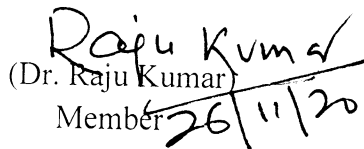 Raju Kumar
(Dr. Raju Kumar)
Member 26/11/20